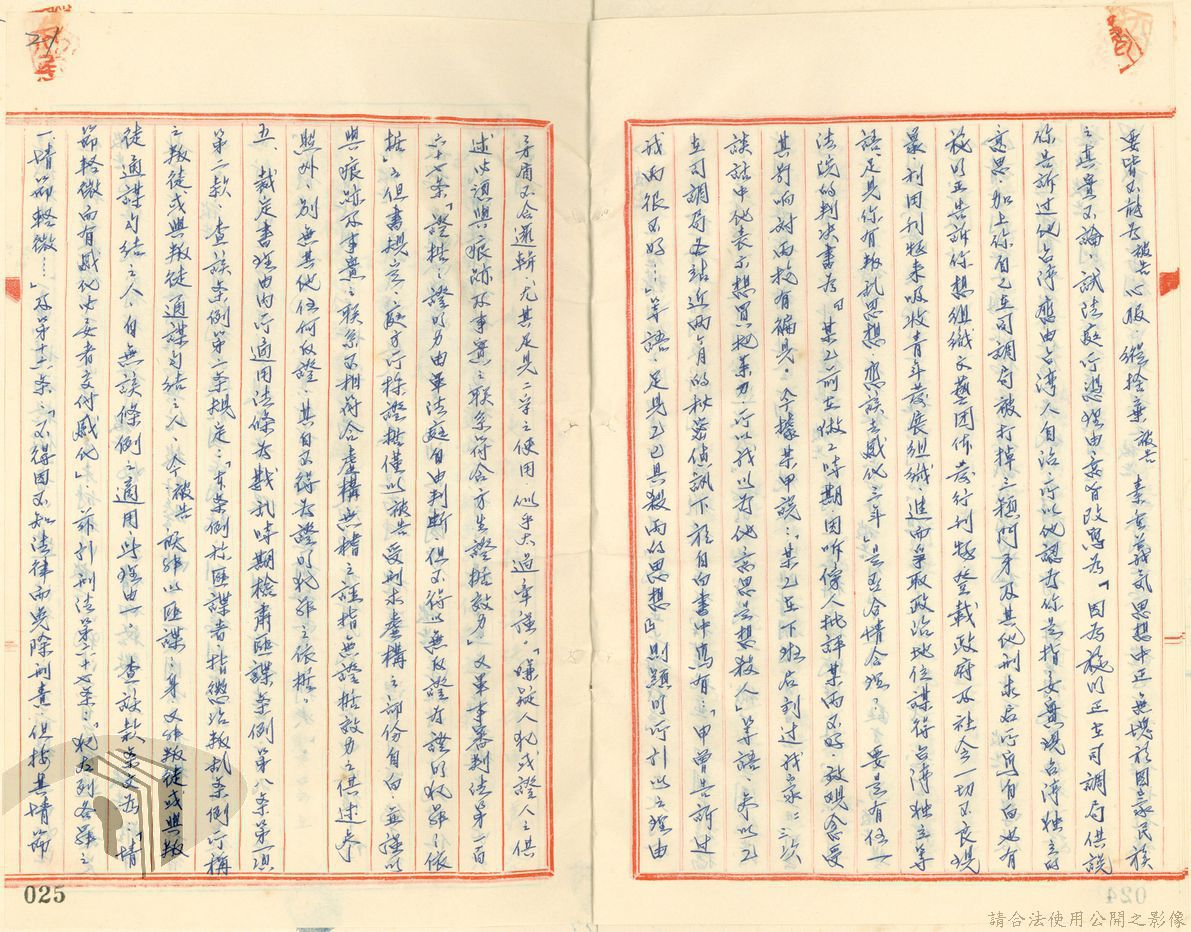 要皆不能為被告心服,縱捨棄被告 素有義氣思想中正無愧於國家民族
之真實不論,試法庭所憑理由要旨改寫為「因為施明正在司調局供說
你告訴過他台灣應由台灣人自治所以他認為你是指要實現台灣獨立的
意思加上你自己在司調局被打掉三顆門牙及其他刑求后所寫自白也有
施明正告訴你想組織文藝團体發行刊物登載政府及社会一切不良現
象,利因刊物來吸收青年發展組織進而爭取政治地位謀得台灣獨立等
語足見你有叛乱思想應該去感化三年」是否合情合理。 要是有任一
法院的判决書為「某乙前在做工時期因听傍人批評某丙不好致現念受
其影响对丙抱有偏見。今據某甲說:『某乙在下班后到过我家二三次
談話中他表示想買把菜刀所以我以為他意思是想殺人』等語,参以乙
在司調局各站近两ケ月的秘密偵訊下於自白書中寫有:『甲曾告訴过
我丙很不好…』等語 足見乙已具殺丙的思想」則顯明所引以之理由
矛盾不合邏輯,尤其足見二字之使用似乎太過牽強。「嫌疑人犯或證人之供
述必須與痕跡及事實之联系符合方生證據效力」又軍事審判法第一百
六十七条「證據之證明力由軍法庭自由判断,但不得以無反證為證明犯罪之依
據」之但書規定,庭方所採證據僅以被告 受刑求虛構之部份自白,無據以
與痕跡及事實之联系不相符合虛構無稽之誣指無證據效力之供述参
照外,別無其他任何反證,其自不得為證明犯罪之依據。
五、裁定書理由內所適用法條為戡乱時期檢肅匪諜条例第八条第一項
第二款 查該条例第二条規定:「本条例称匪諜者,指懲治叛乱条例所稱
之叛徒或與叛徒通謀勾結之人」今被告 既非以匪諜之身,又非叛徒或與叛
徒通謀勾結之人,自無該條例之適用,此理由一。 查該款条文為:「情
節輕微而有感化必要者交付感化」并引刑法第五十七条:「犯左列各罪之
一情節輕微…」及第十六条:「不得因不知法律而免除刑責,但按其情節
025
024
21
請合法使用公開之影像